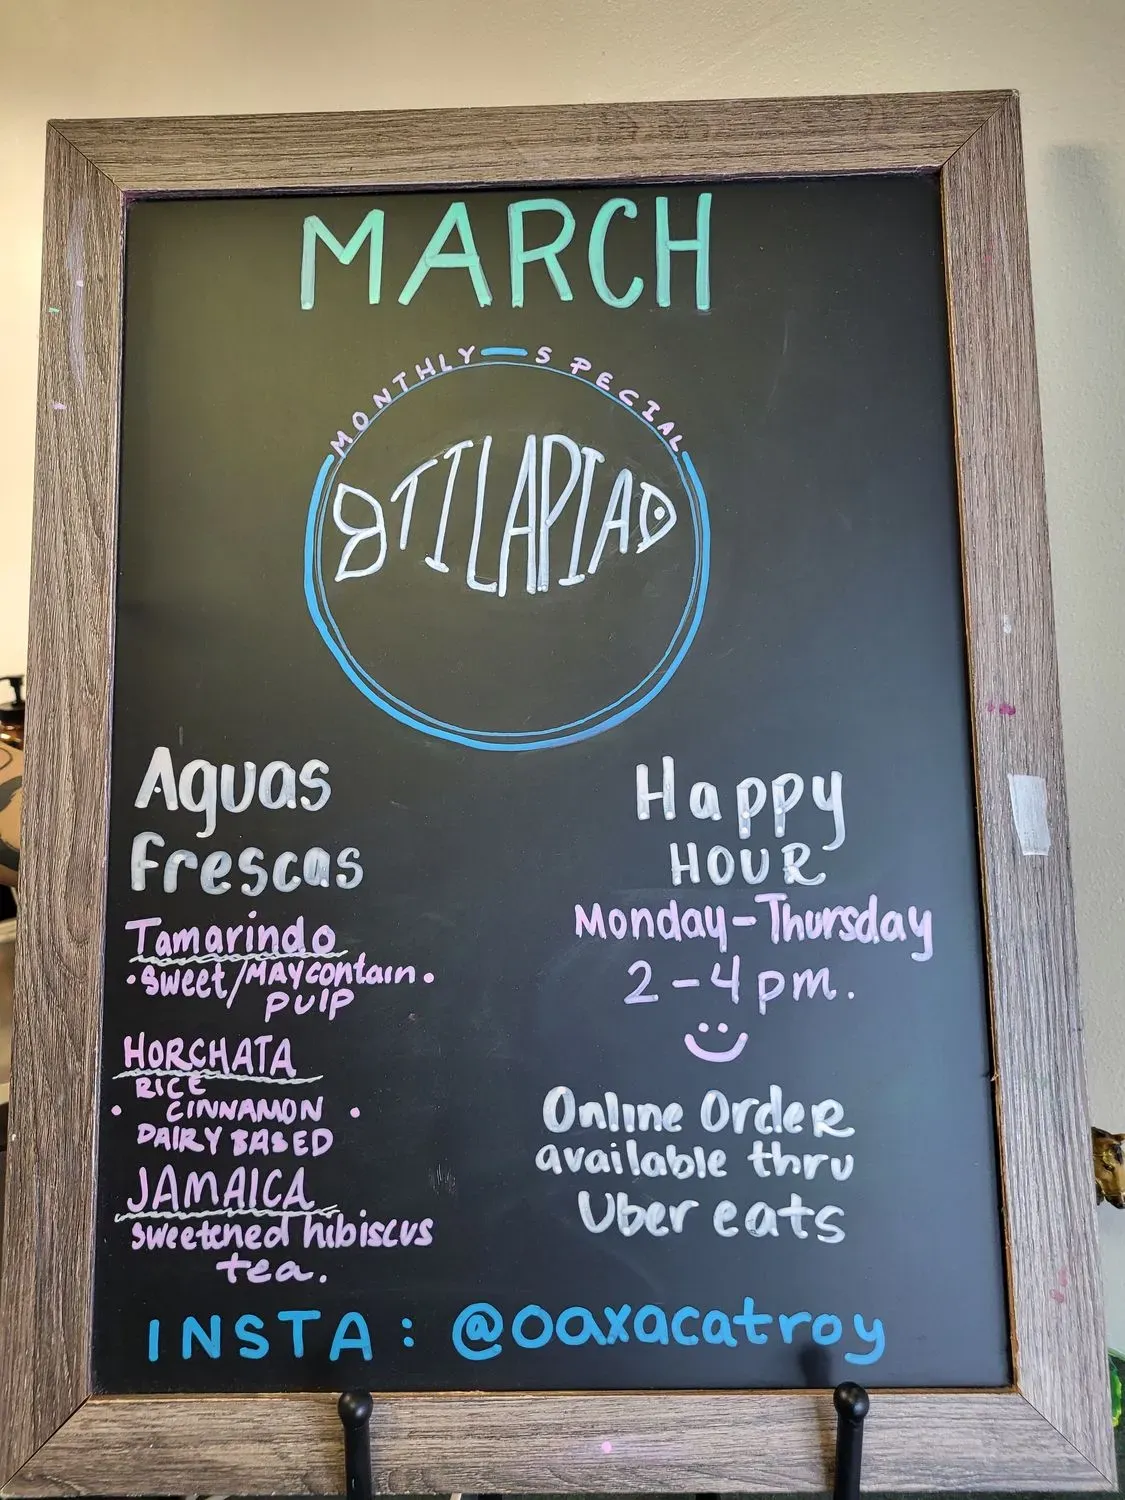 MARCH
MONTHLY - SPECIAL
TILAPIA
Aguas
frescas
Tamarindo
• Sweet/MAY contain •
pulp
HORCHATA
RICE
• CINNAMON •
DAIRY BASED
JAMAICA
sweetened hibiscus
tea.
Happy
HOUR
Monday-Thursday
2-4 pm.
Online Order
available thru
Uber eats
INSTA: @oaxacatroy